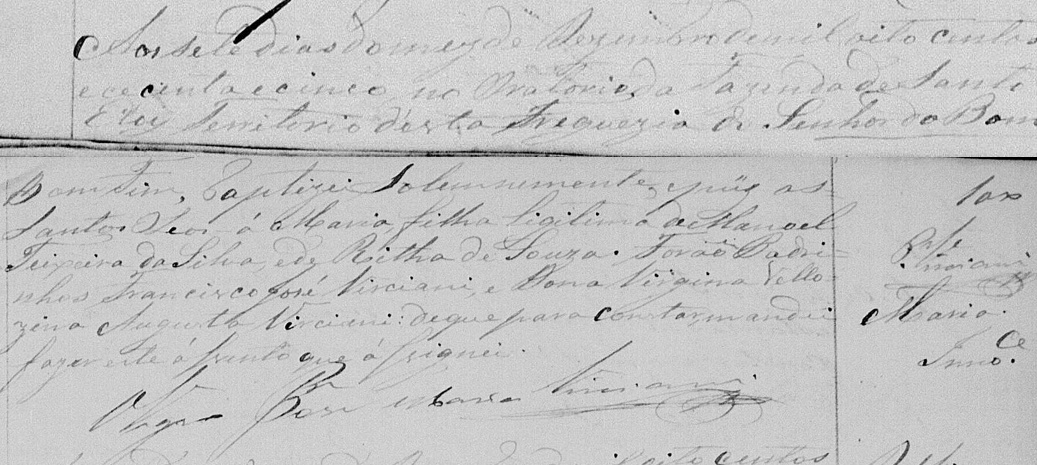 Aos sete dias do mez de Dezembro de mil oito centos
e cecenta e cinco, no Oratorio, da Fazenda de Santo
Eloy Territorio desta Freguezia do Senhor do Bom
Bomfim, Baptizei Solemnemente, e puz os
Santos Leos á Maria, filha ligitima de Manoel
Teixeira da Silva, e de Ritha de Souza. Forão Padri-
nhos Francisco José Virciani, e Dona Virgina Vello-
zina Augusta Virciani: de que para constar, mandei
fazer este ássento que á ssignei.
Vigr.º José Maria Virciani
Virciani
Maria.
Inno.ce
oito centos